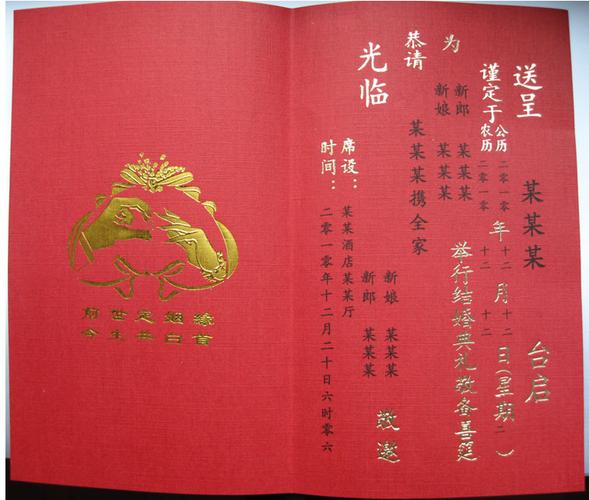 送呈 某某某 台启
谨定于 公历 二〇一〇 年 十二 月 十二 日(星期二)
农历 二〇一〇 十二 十二
为 新郎 某某某 举行结婚典礼敬备喜筵
新娘 某某某
恭请 某某某携全家
光临
新娘 某某某 敬邀
新郎 某某某
席设：某某酒店某某厅
时间：二〇一〇年十二月二十日六时零六
前世定姻緣
今生共白首